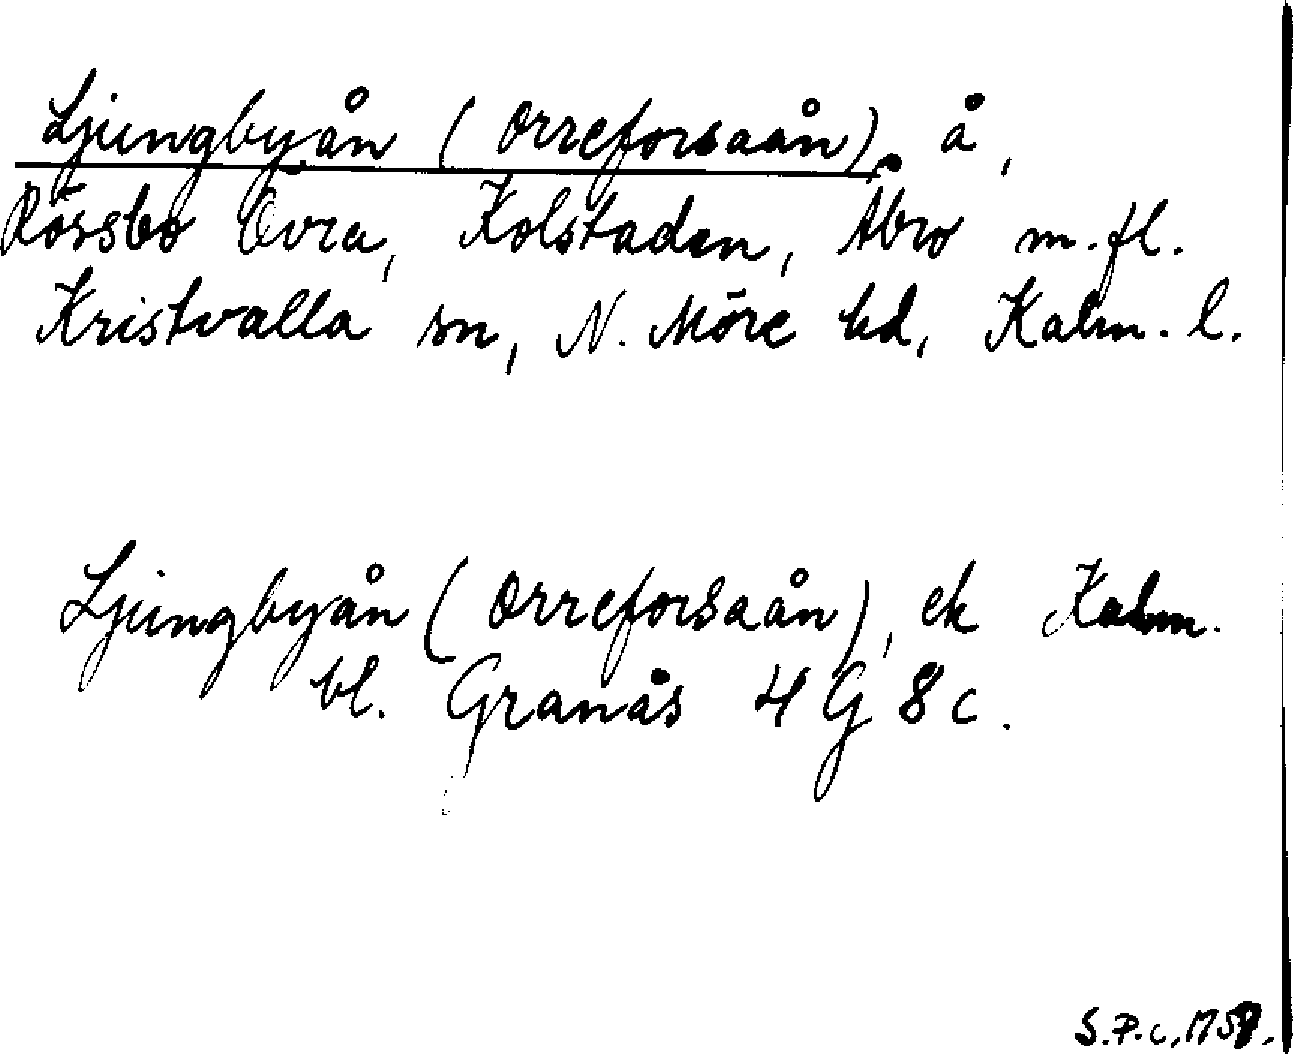 Ljungbyån (Orreforsaån), å,
Rössbo Övra, Kolstaden, Åbro m.fl.
Kristvalla sn, N. Möre hd, Kalm. l.
Ljungbyån (Orreforsaån), ek Kalm.
bl. Granås 4G 8c.